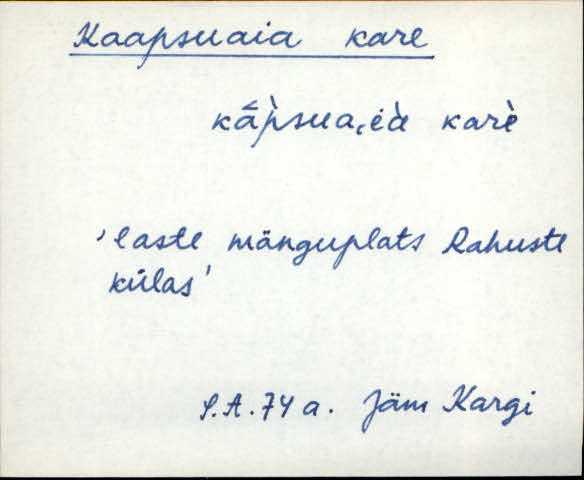 Kaapsuaia kare
kā̀psuaˌi̇à karè
'laste mänguplats Rahuste
külas'
S.A. 74 a. Jäm Kargi